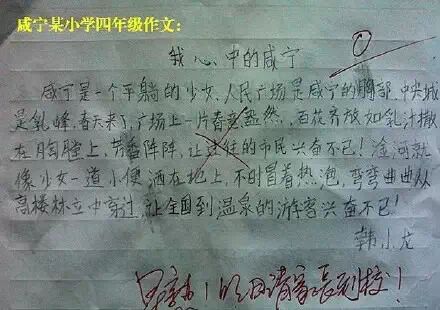 咸宁某小学四年级作文:
0
我心中的咸宁
咸宁是一个平躺的少女,人民广场是咸宁的胸部,中央城
是乳峰,春天来了,广场上一片春意盎然,百花齐放如乳汁撒
在胸膛上,芳香阵阵,让过往的市民兴奋不已!淦河就
像少女一道小便洒在地上,不时冒着热泡,弯弯曲曲从
高楼林立中穿过,让全国到温泉的游客兴奋不已!
韩小龙
明日请家长到校!